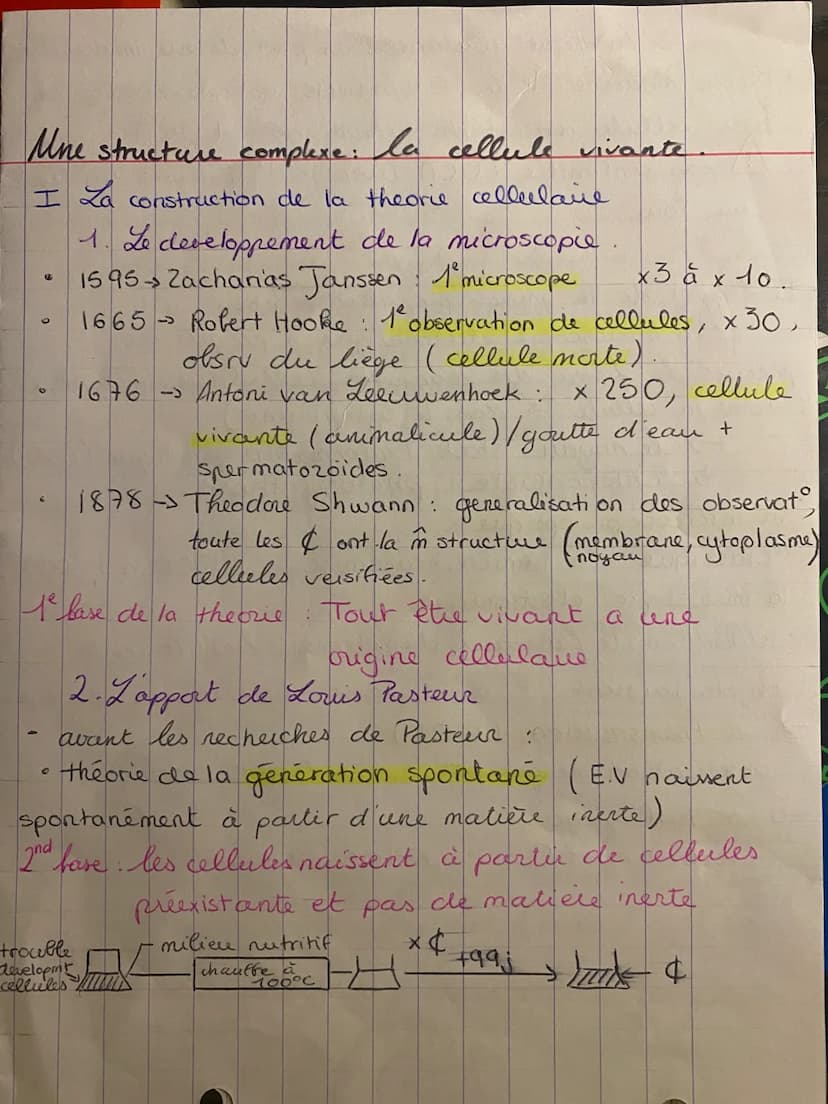 Une structure complexe : la cellule vivante.
I La construction de la theorie cellulaire
1. Le developpement de la microscopie.
• 1595 → Zacharias Janssen : 1e microscope x3 à x 10.
• 1665 → Robert Hooke : 1e observation de cellules, x30,
obsrv du liège (cellule morte).
• 1676 → Antoni van Leeuwenhoek : x 250, cellule
vivante (animalicule)/goutte d'eau +
spermatozoïdes.
• 1878 → Theodore Shwann : generalisation des observat°,
toute les ₵ ont la m̂ structure (membrane, cytoplasme)
noyau
cellules versifiées.
1e base de la theorie : Tout être vivant a une
origine cellulaire
2. L'apport de Louis Pasteur
- avant les recherches de Pasteur :
• théorie de la génération spontané (E.V naissent
spontanément à partir d'une matière inerte)
2nd base : les cellules naissent à partir de cellules
préexistante et pas de matière inerte
trouble
developmt
cellules
milieu nutritif
chauffe à
100°C
x ₵
+99j
₵